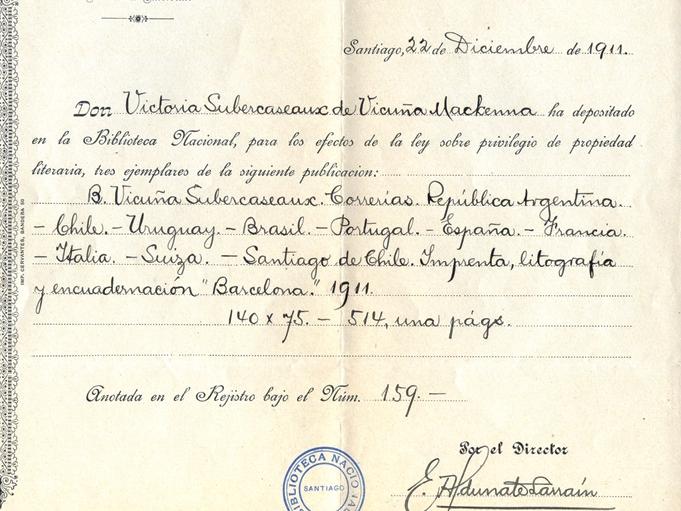 Santiago, 22 de Diciembre de 1911.
Don Victoria Subercaseaux de Vicuña Mackenna ha depositado
en la Biblioteca Nacional, para los efectos de la ley sobre privilegio de propiedad
literaria, tres ejemplares de la siguiente publicacion:
B. Vicuña Subercaseaux. Correrías. República Argentina.
- Chile. - Uruguay. - Brasil. - Portugal. - España. - Francia.
- Italia. - Suiza. - Santiago de Chile. Imprenta, litografía
y encuadernación "Barcelona." 1911.
140 x 75. - 514, una págs.
Anotada en el Rejistro bajo el Núm. 159. -
Por el Director
E. Aldunate Larraín
BIBLIOTECA NACIONAL
SANTIAGO
IMP. CERVANTES, BANDERA 50